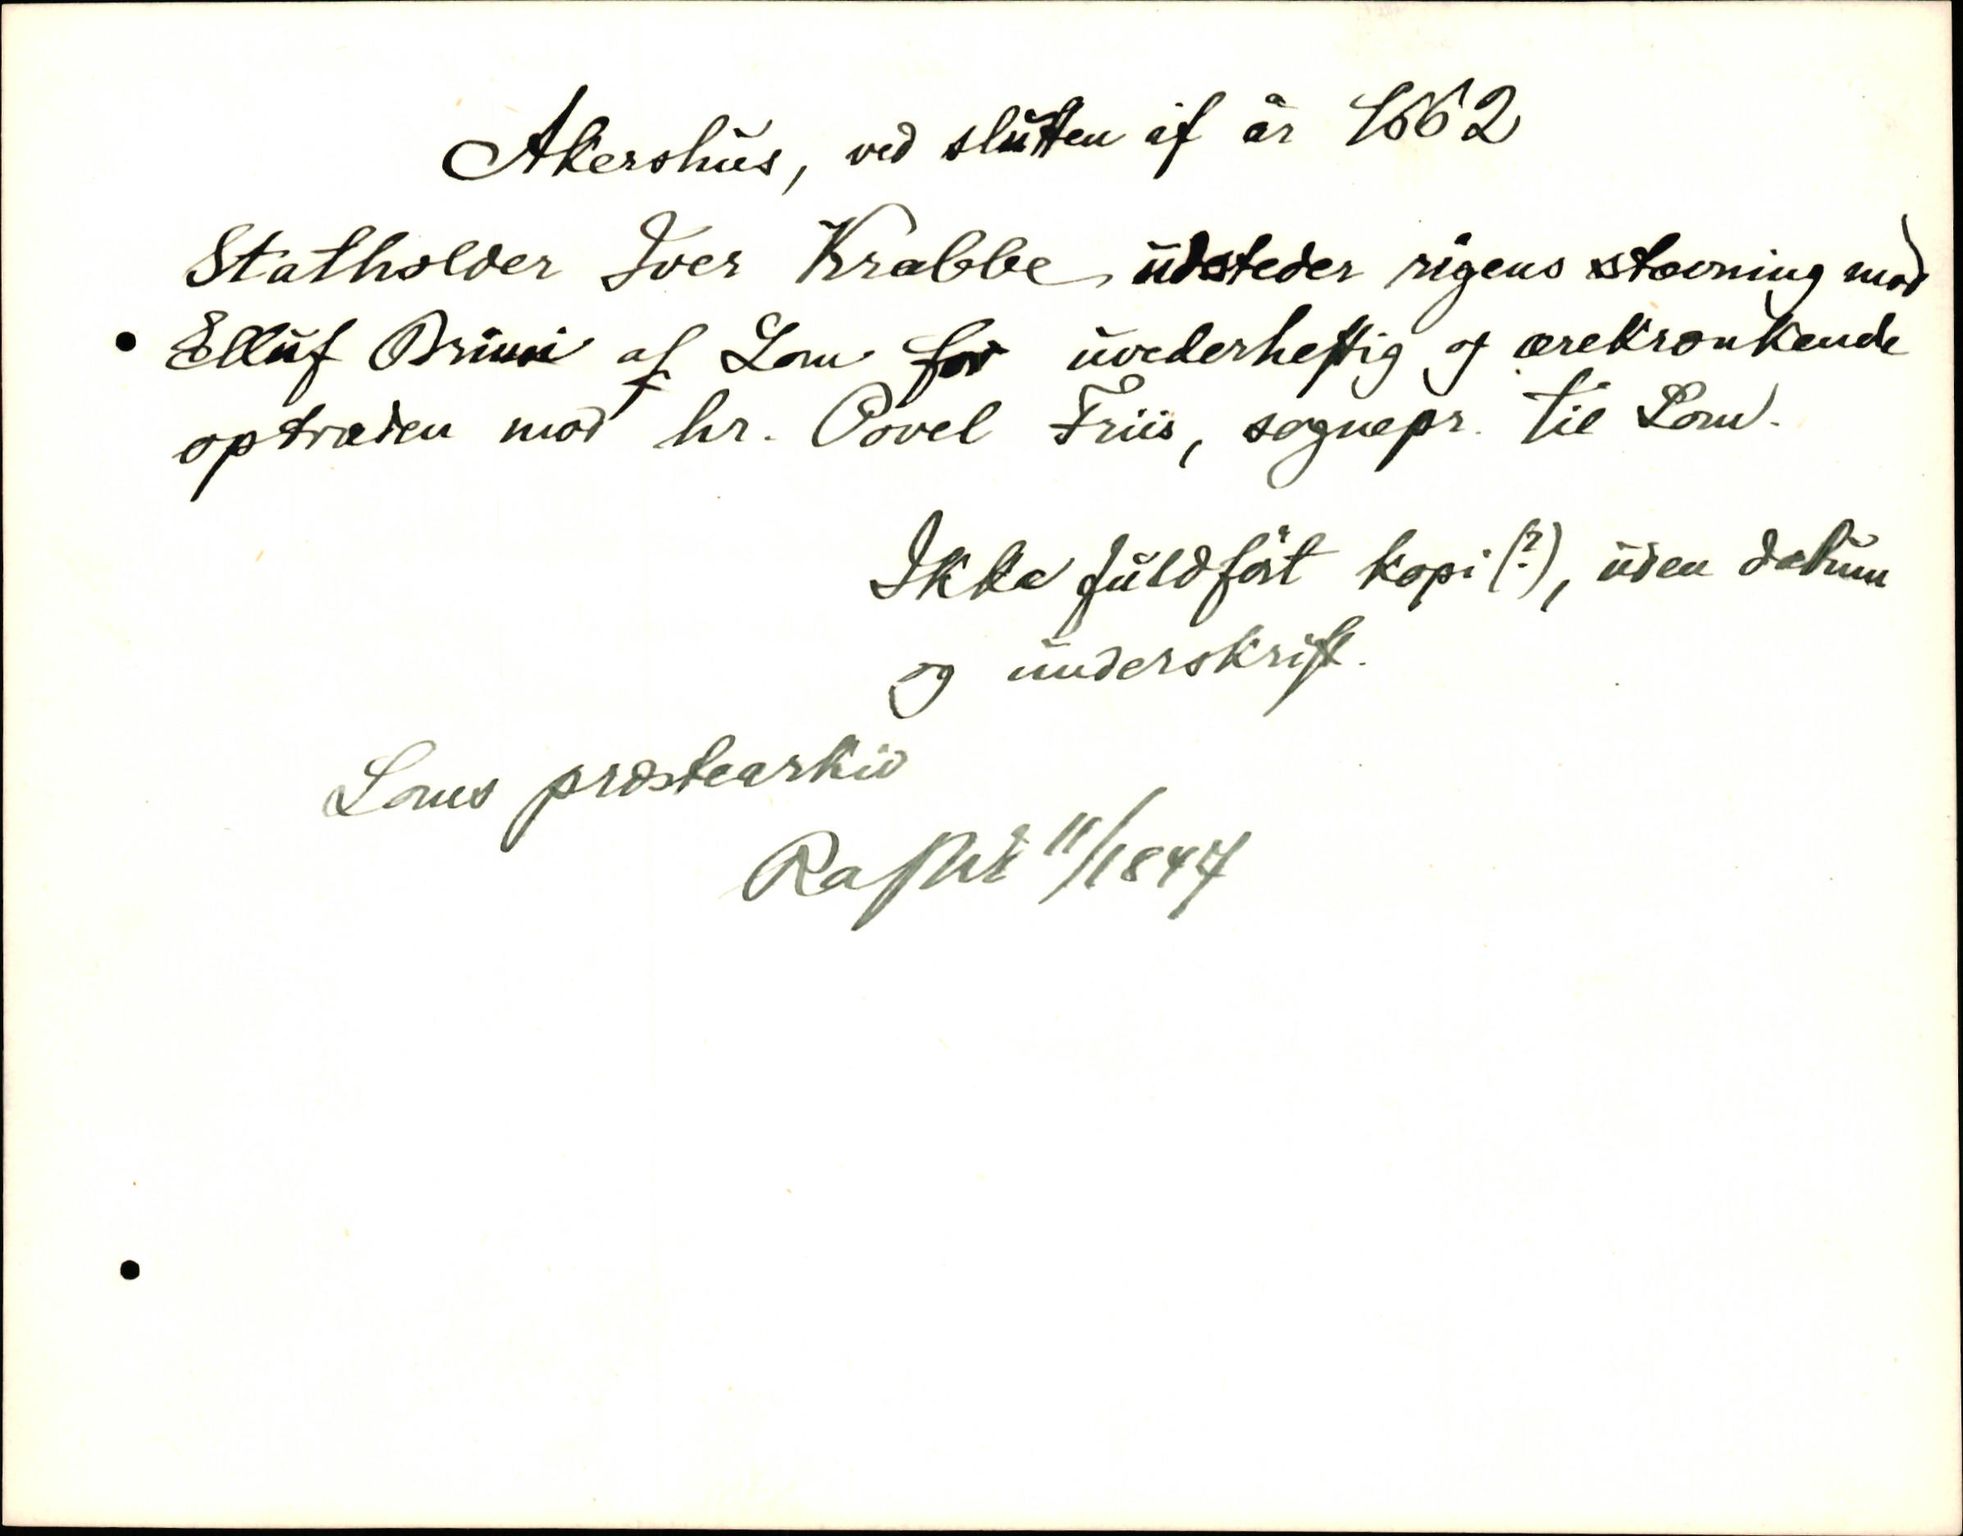 Akershus, ved slutten af år 1662
Statholder Iver Krabbe udsteder rigens stævning mod
Elluf Brimi af Lom for uvederheftig og ærekrænkende
optræden mod hr. Povel Friis, sognepr. til Lom.
Ikke fuldført kopi (?), uden datum
og underskrift.
Loms prestearkiv
11/1847